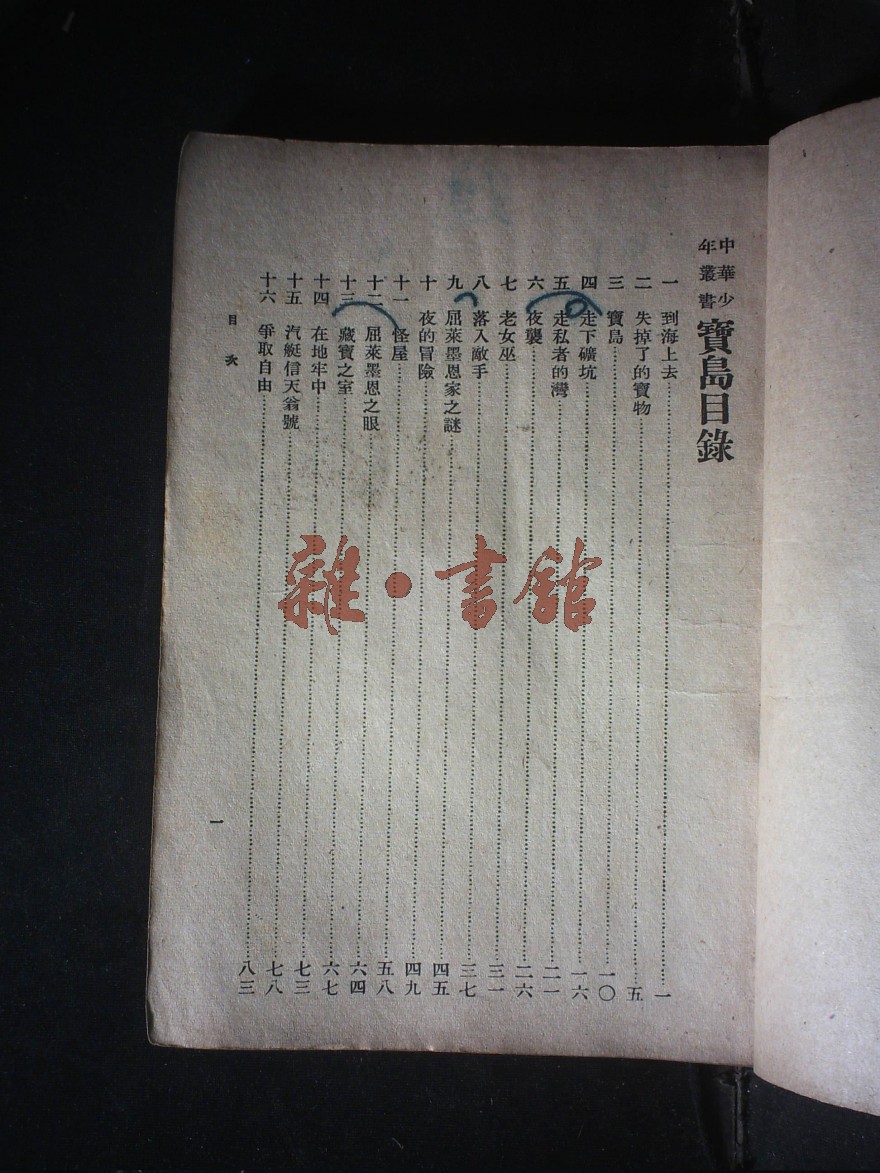 中華少年叢書 寶島目錄
一 到海上去……一
二 失掉了的寶物……五
三 寶島……一〇
四 走下礦坑……一六
五 走私者的灣……二一
六 夜襲……二六
七 老女巫……三一
八 落入敵手……三七
九 屈萊墨恩家之謎……四五
十 夜的冒險……四九
十一 怪屋……五八
十二 屈萊墨恩之眼……六四
十三 藏寶之室……六七
十四 在地牢中……七三
十五 汽艇信天翁號……七八
十六 爭取自由……八三
目次
一
雜·書館